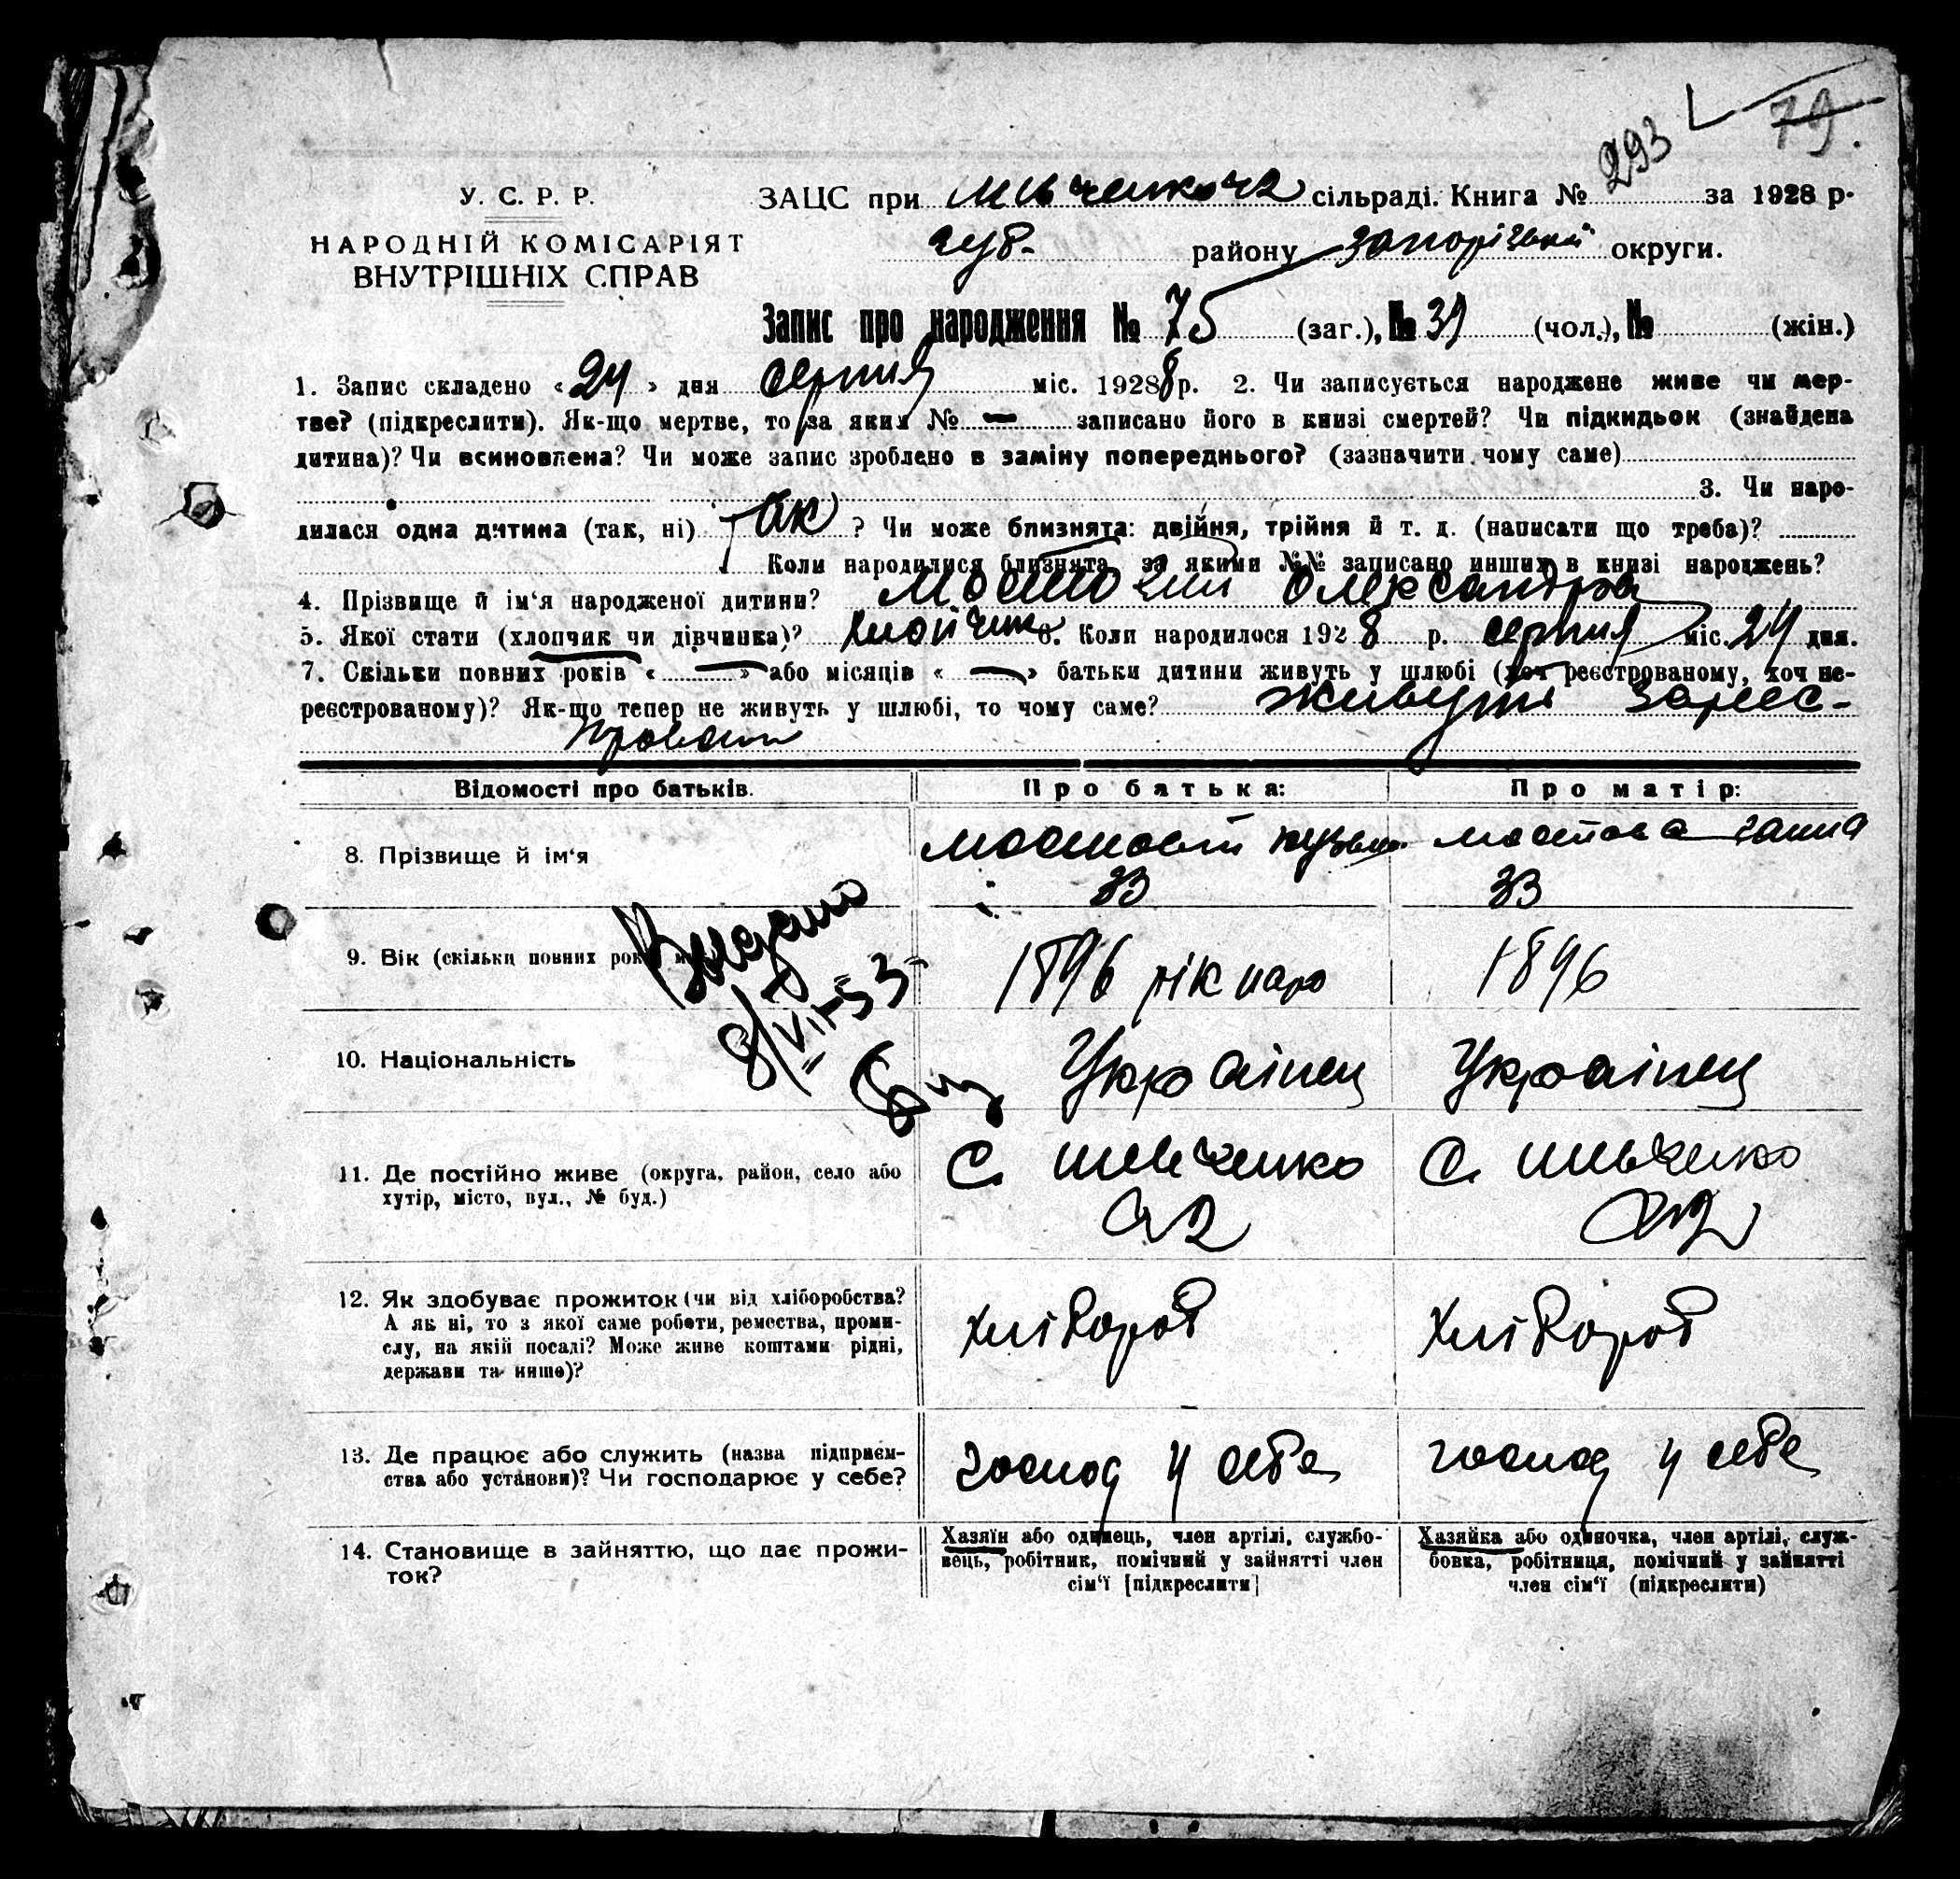 293 79.
У. С. Р. Р.
НАРОДНІЙ КОМІСАРІЯТ
ВНУТРІШНІХ СПРАВ
ЗАЦС при сільраді. Книга № за 1928 р.
району Запорізької округи.
Запис про народження № 75 (заг.), № 39 (чол.), № (жін.)
1. Запис складено « 24 » дня серпня міс. 1928 8 р. 2. Чи записується народжене живе чи мер-
тве? (підкреслити). Як-що мертве, то за яким № — записано його в книзі смертей? Чи підкидьок (знайдена
дитина)? Чи всиновлена? Чи може запис зроблено в заміну попереднього? (зазначити чому саме)
3. Чи наро-
дилася одна дитина (так, ні) так ? Чи може близнята: двійня, трійня й т. д. (написати що треба)?
Коли народилися близнята, за якими №№ записано инших в книзі народжень?
4. Прізвище й ім‘я народженої дитини? Мостовий Олександра
5. Якої стати (хлопчик чи дівчинка)? хлопчик 6. Коли народилося 192 8 р. серпня міс. 24 дня.
7. Скільки повних років « — » або місяців « — » батьки дитини живуть у шлюбі (хоч реєстрованому, хоч не-
реєстрованому)? Як-що тепер не живуть у шлюбі, то чому саме? живуть зареєс-
тровані
Відомості про батьків. Про батька: Про матір:
8. Прізвище й ім‘я Мостовий Кузьма Мостова Ганна
33 33
9. Вік (скільки повних рок 1896 рік наро 1896
Видано
8/VII-53
10. Національність Українец Українец
11. Де постійно живе (округа, район, село або
хутір, місто, вул., № буд.)
12. Як здобуває прожиток (чи від хліборобства?
А як ні, то з якої саме роботи, ремества, проми-
слу, на якій посаді? Може живе коштами рідні,
держави та инше)?
Хлібороб Хлібороб
13. Де працює або служить (назва підприєм-
ства або установи)? Чи господарює у себе?
господ у себе господ у себе
14. Становище в зайняттю, що дає прожи-
ток?
Хазяїн або одинець, член артілі, службо-
вець, робітник, помічний у зайнятті член
сім‘ї [підкреслити]
Хазяйка або одиночка, член артілі, служ-
бовка, робітниця, помічний у зайнятті
член сім‘ї (підкреслити)